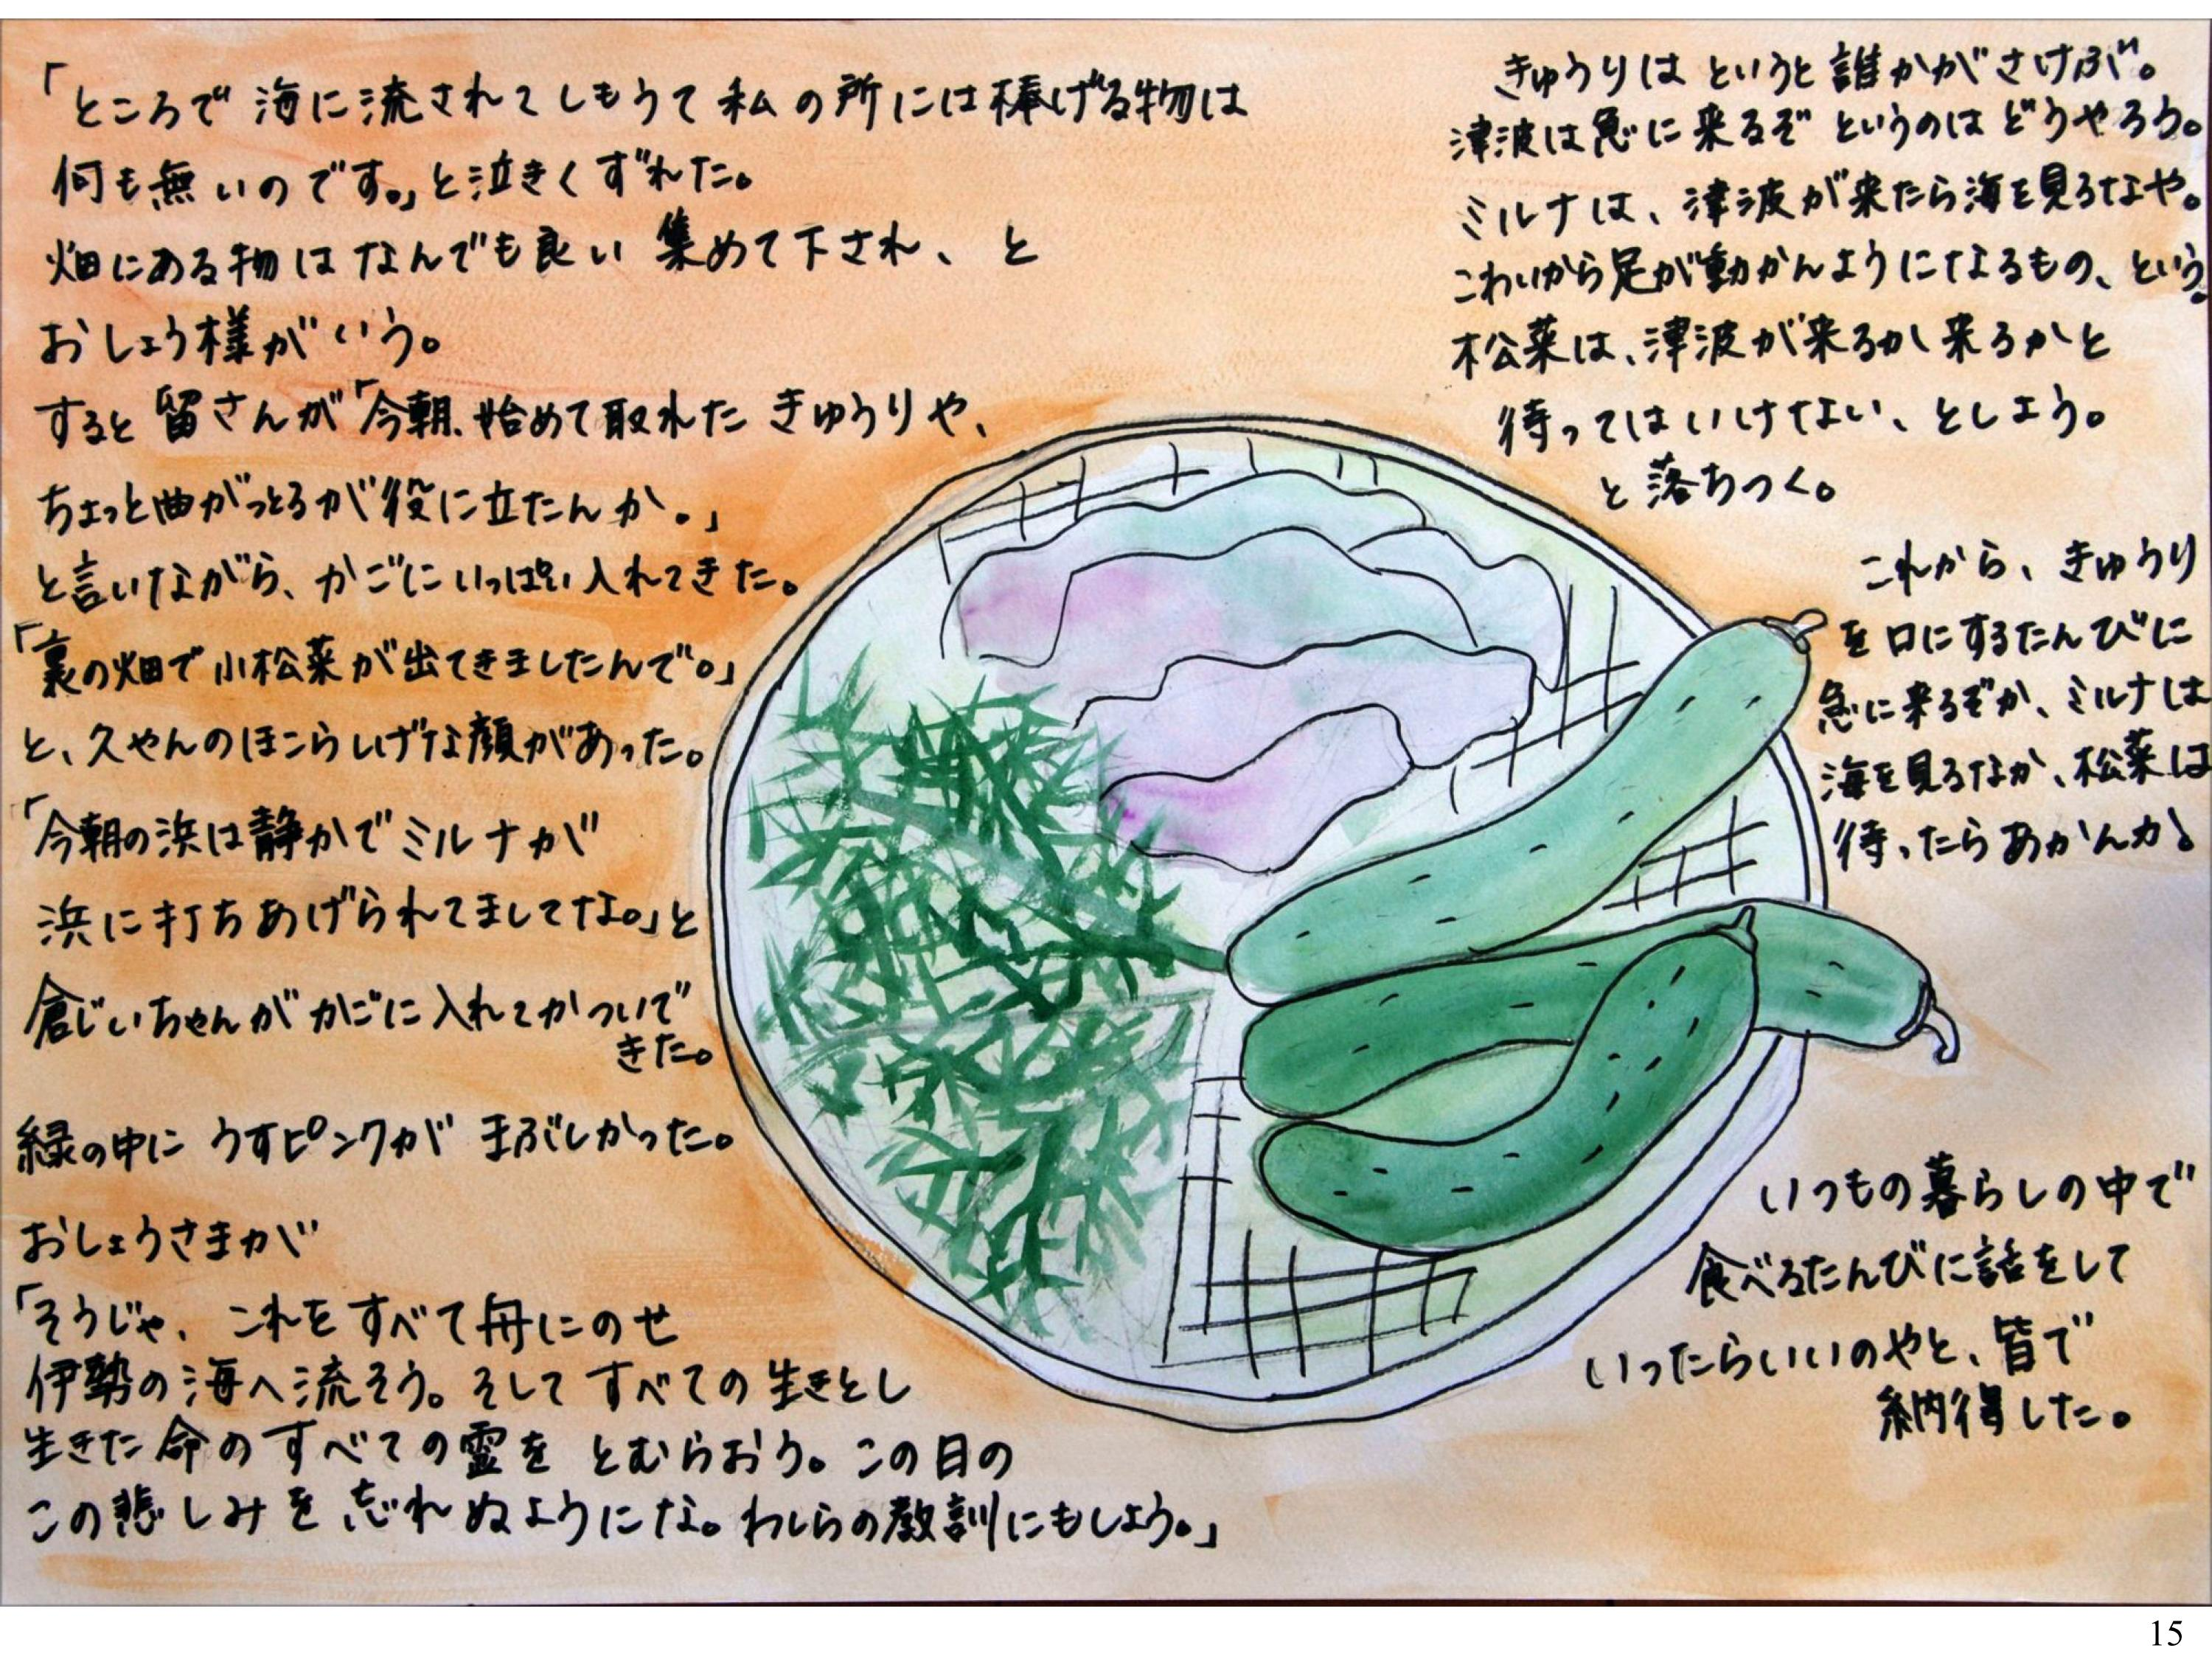 「ところで 海に流されてしもうて 私の所には捧げる物は
何も無いのです。」と泣きくずれた。
畑にある物は なんでも良い 集めて下され、と
おしょう様がいう。
すると 留さんが「今朝、始めて取れた きゅうりや、
ちょっと曲がっとるが役に立たんか。」
と言いながら、かごにいっぱい入れてきた。
「裏の畑で小松菜が出てきましたんで。」
と、久やんのほこらしげな顔があった。
「今朝の浜は静かで ミルナが
浜に打ちあげられてましてな。」と
倉じいちゃんが かごに入れてかついで
きた。
緑の中に うすピンクが まぶしかった。
おしょうさまが
「そうじゃ、これを すべて舟にのせ
伊勢の海へ流そう。そして すべての 生きとし
生きた 命の すべての霊を とむらおう。この日の
この悲しみを 忘れぬようにな。わしらの教訓にもしよう。」
きゅうりは というと 誰かがさけぶ。
津波は急に来るぞ というのは どうやろう。
ミルナは、津波が来たら海を見るなや。
こわいから足が動かんようになるもの、という。
松菜は、津波が来るか来るかと
待ってはいけない、としよう。
と落ちつく。
これから、きゅうり
を口にするたんびに
急に来るぞか、ミルナは
海を見るなか、松菜は
待ったらあかんか。
いつもの暮らしの中で
食べるたんびに話をして
いったらいいのやと、皆で
納得した。
15